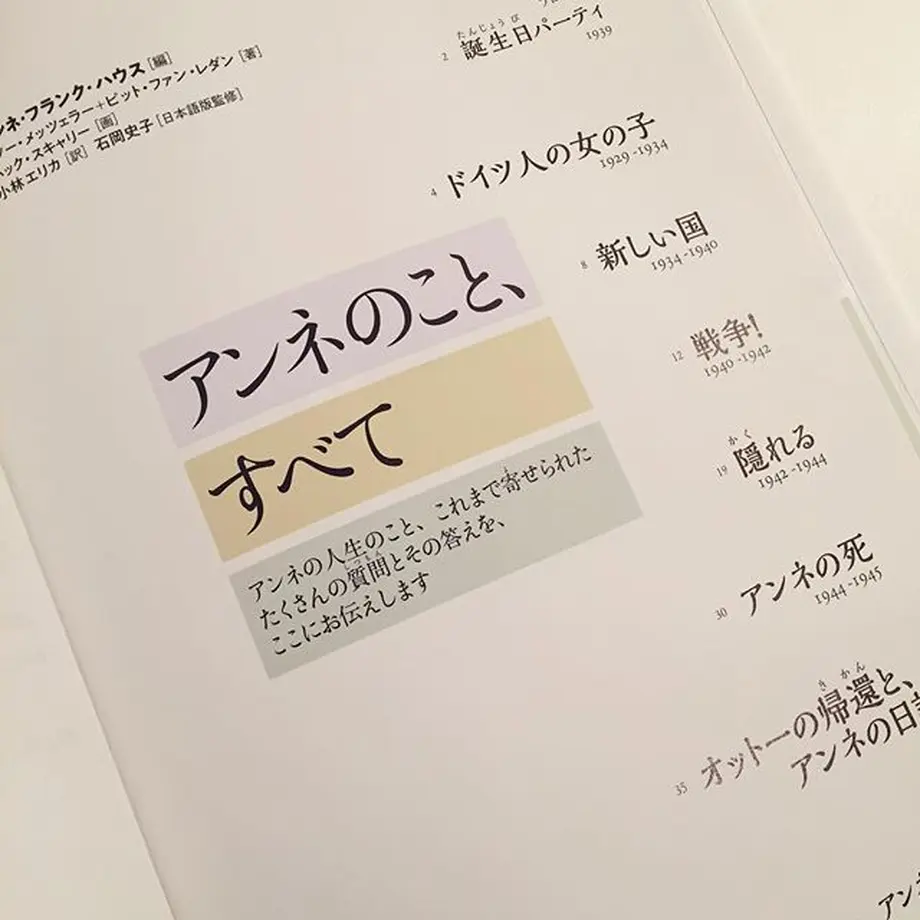 ンネ・フランク・ハウス[編]
ー・メッツェラー+ピット・ファン・レダン[著]
ック・スキャリー[画]
小林エリカ[訳] 石岡史子[日本語版監修]
アンネのこと、
すべて
アンネの人生のこと、これまで寄せられた
たくさんの質問とその答えを、
ここにお伝えします
たんじょう び
2 誕生日パーティ
1939
4 ドイツ人の女の子
1929-1934
8 新しい国
1934-1940
12 戦争!
1940-1942
かく
19 隠れる
1942-1944
30 アンネの死
1944-1945
き かん
35 オットーの帰還と、
アンネの日
アン